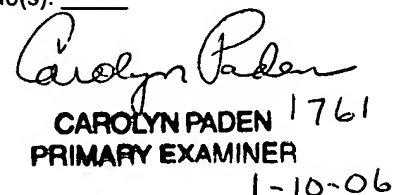 No(s). ____
Carolyn Paden
CAROLYN PADEN 1761
PRIMARY EXAMINER
1-10-06